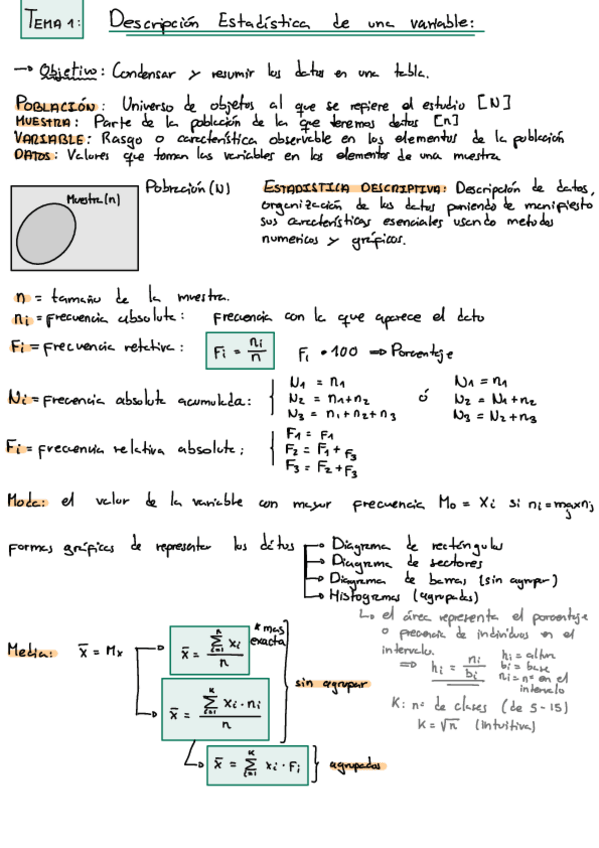 TEMA 1: Descripción Estadística de una variable:
→ Objetivo: Condensar y resumir los datos en una tabla.
POBLACIÓN: Universo de objetos al que se refiere el estudio [N]
MUESTRA: Parte de la población de la que tenemos datos [n]
VARIABLE: Rasgo o característica observable en los elementos de la población
DATOS: Valores que toman las variables en los elementos de una muestra
Muestra(n)
Población (N)
ESTADISTICA DESCRIPTIVA: Descripción de datos,
organización de los datos poniendo de manifiesto
sus características esenciales usando metodos
numericos y gráficos.
n = tamaño de la muestra.
ni = frecuencia absoluta: frecuencia con la que aparece el dato
Fi = frecuencia relativa: Fi = ni/n Fi • 100 ⇒ Porcentaje
Ni = frecuencia absoluta acumulada: N1 = n1 ó N1 = n1
N2 = n1+n2 N2 = N1+n2
N3 = n1+n2+n3 N3 = N2+n3
Fi = frecuencia relativa absoluta: F1 = F1
F2 = F1+F3
F3 = F2+F3
Moda: el valor de la variable con mayor frecuencia Mo = Xi si ni=maxnj
formas gráficas de representar los datos → Diagrama de rectángulos
→ Diagrama de sectores
→ Diagrama de barras (sin agrupar)
→ Histogramas (agrupados)
↳ el área representa el porcentaje
o frecuencia de individuos en el
intervalo.
⇒ hi = ni/bi
hi = altura
bi = base
ni = nº en el
intervalo
K: nº de clases (de 5-15)
K = √n (intuitiva)
Media: x̄ = Mx
x̄ = Σ i=1 n xi / n
* mas
exacta
x̄ = Σ i=1 K xi · ni / n
sin agrupar
x̄ = Σ i=1 K xi · Fi
agrupados